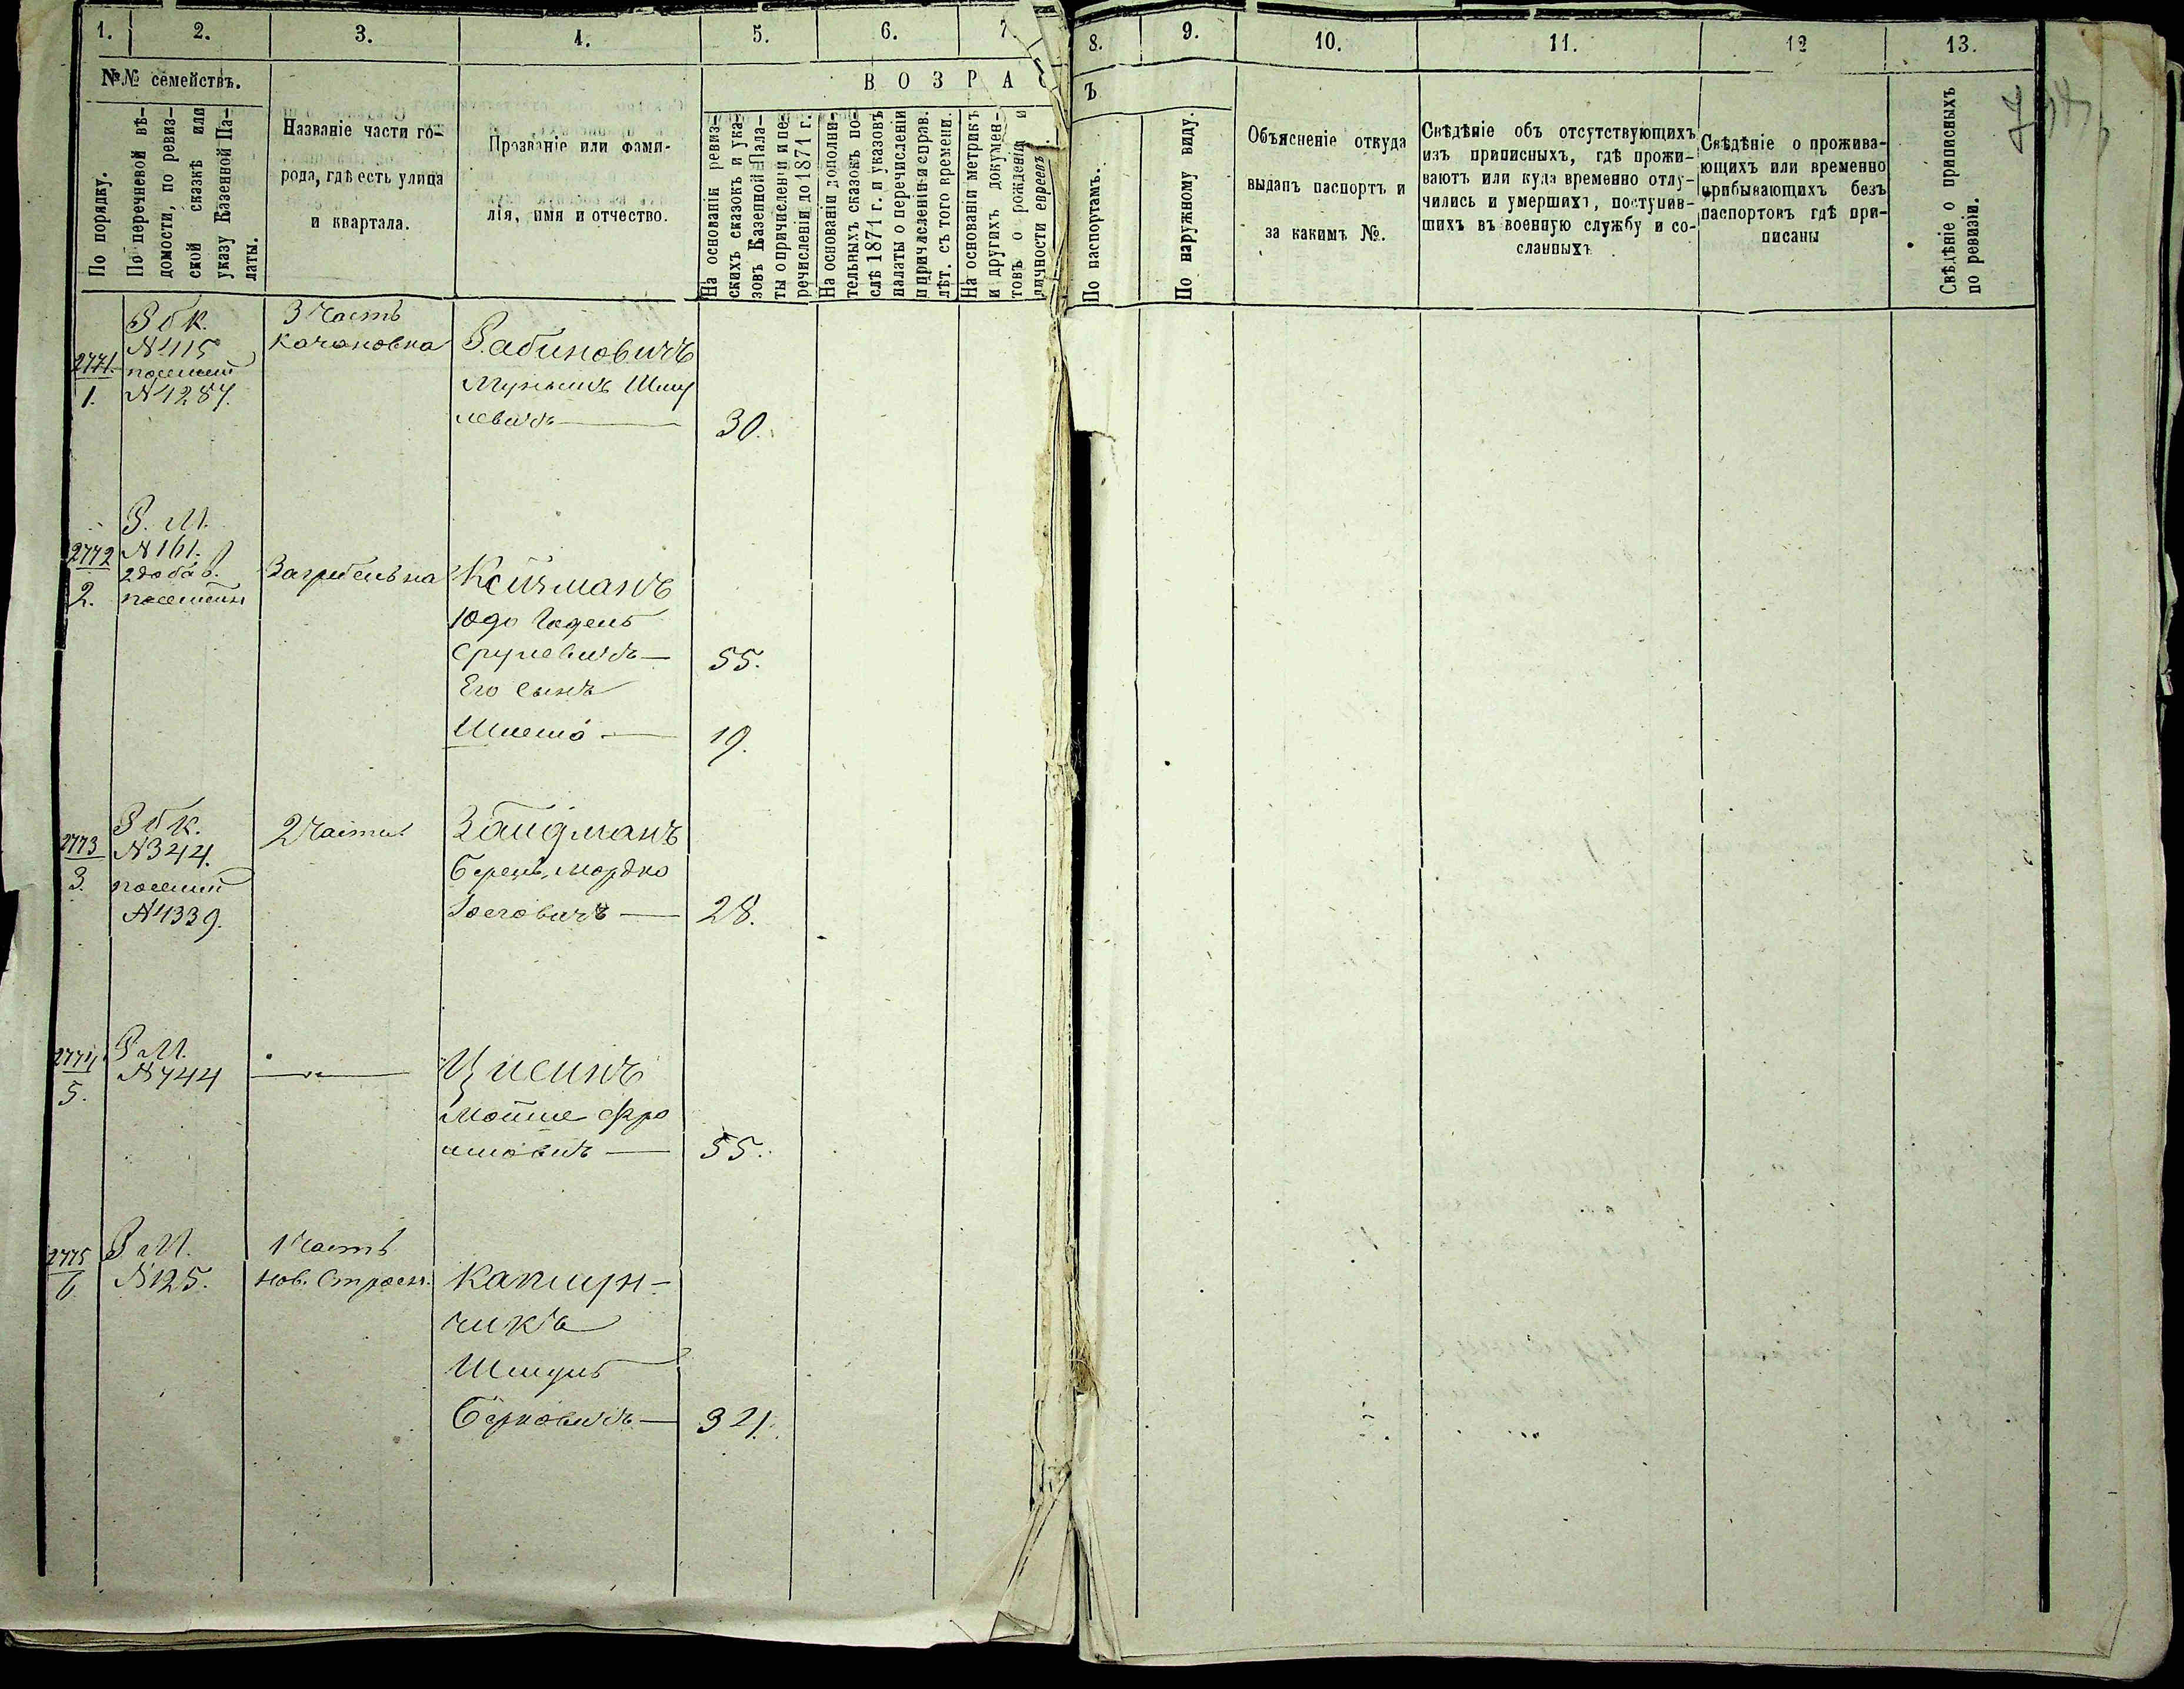 1. 2. 3. 4. 5. 6. 7
8. 9. 10. 11. 12 13.
№№ семействъ.
ВОЗРА
Ъ
По порядку.
По перечневой вѣ-
домости, по ревиз-
ской сказкѣ или
указу Казенной Па-
латы.
Названіе части го-
рода, гдѣ есть улица
и квартала.
Прозваніе или фами-
лія, имя и отчество.
На основаніи ревиз-
скихъ сказокъ и ука-
зовъ Казенной Пала-
ты о причисленіи и пе-
речисленіи до 1871 г.
На основаніи дополни-
тельныхъ сказокъ по-
слѣ 1871 г. и указовъ
палаты о перечисленіи
и причисленіи и справ.
лѣт. съ того времени.
На основаніи метрикъ
и другихъ докумен-
товъ о рожденіи и
личности евреевъ
По паспортамъ.
По наружному виду.
Объясненіе откуда
выданъ паспортъ и
за какимъ №.
Свѣдѣніе объ отсутствующихъ
изъ приписныхъ, гдѣ прожи-
ваютъ или куда временно отлу-
чились и умершихъ, поступив-
шихъ въ военную службу и со-
сланныхъ
Свѣдѣніе о прожива-
ющихъ или временно
прибывающихъ безъ
паспортовъ гдѣ при-
писаны
Свѣдѣніе о приписныхъ
по ревизіи.
2771. Р б К. 3 Часть
1. №415 Качановка Рабиновичъ
№4287. Мунышъ Шму
левичъ — 30.
2772 Р. М.
2. №161. Загребельна Койчманъ
2 добав. Юдо
Срулевичъ — 55.
Его сынъ
Шлемо — 19.
2773 Р б К. 2 Части Зайдманъ
3. №344. Берень, Мордко
№4339. 28.
2774 Р М.
5. №744 — Цисинъ
Мойше Фро
имовичъ — 55.
2775 Р М. 1 Часть
6. №125. Нов. Строен. Каплун-
чикъ
Шмуль
Берковичъ — 32.